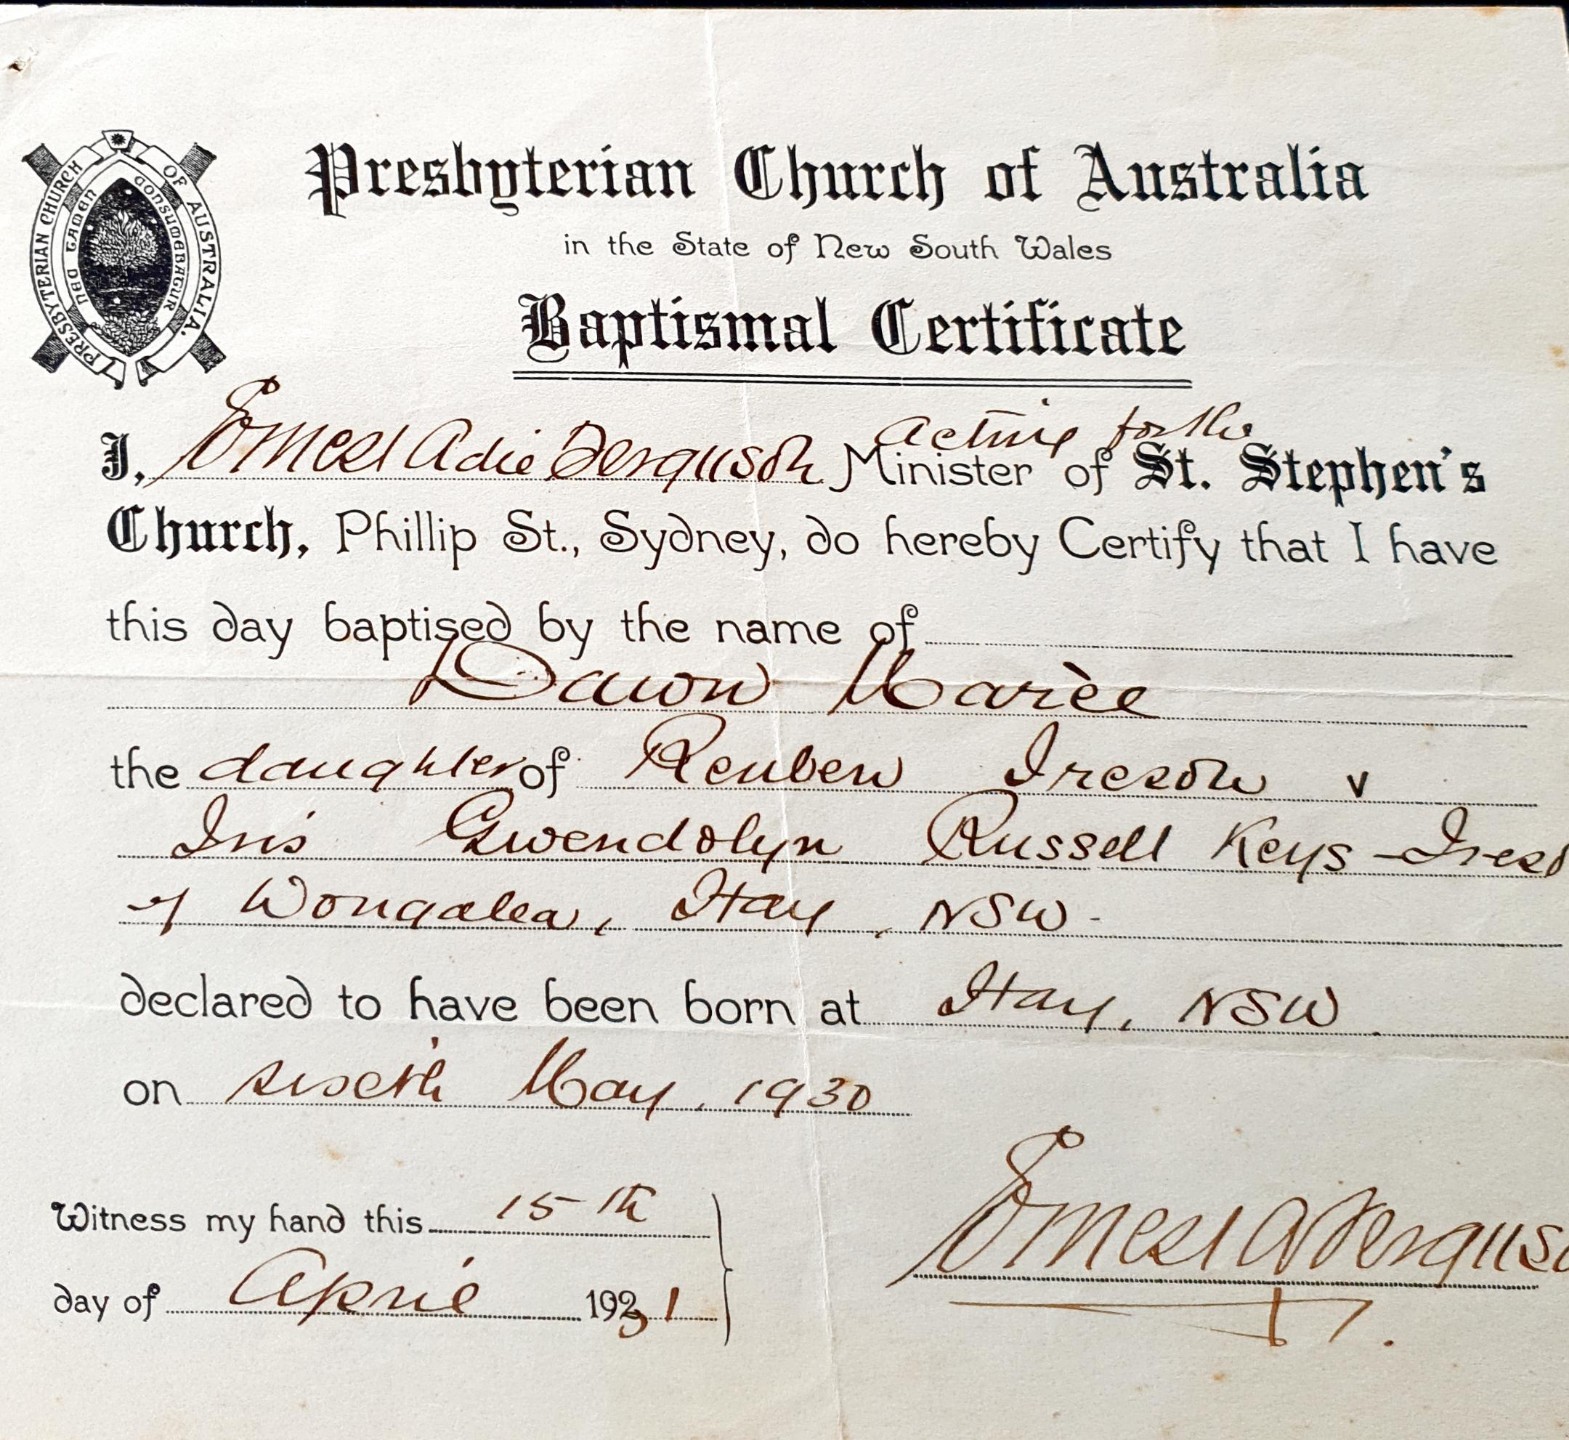 PRESBYTERIAN CHURCH OF AUSTRALIA.
NEC TAMEN CONSUMEBATUR
Presbyterian Church of Australia
in the State of New South Wales
Baptismal Certificate
acting for the
I, Ernest Adie Ferguson Minister of St. Stephen's
Church, Phillip St., Sydney, do hereby Certify that I have
this day baptised by the name of
Dawn Marèe
the daughter of Reuben Ireson v
Iris Gwendolyn Russell Keys-Ireso
of Wongalea, Hay, NSW-
declared to have been born at Hay, NSW.
on sixth May, 1930
Witness my hand this 15th
day of April 1931
Ernest A Ferguso